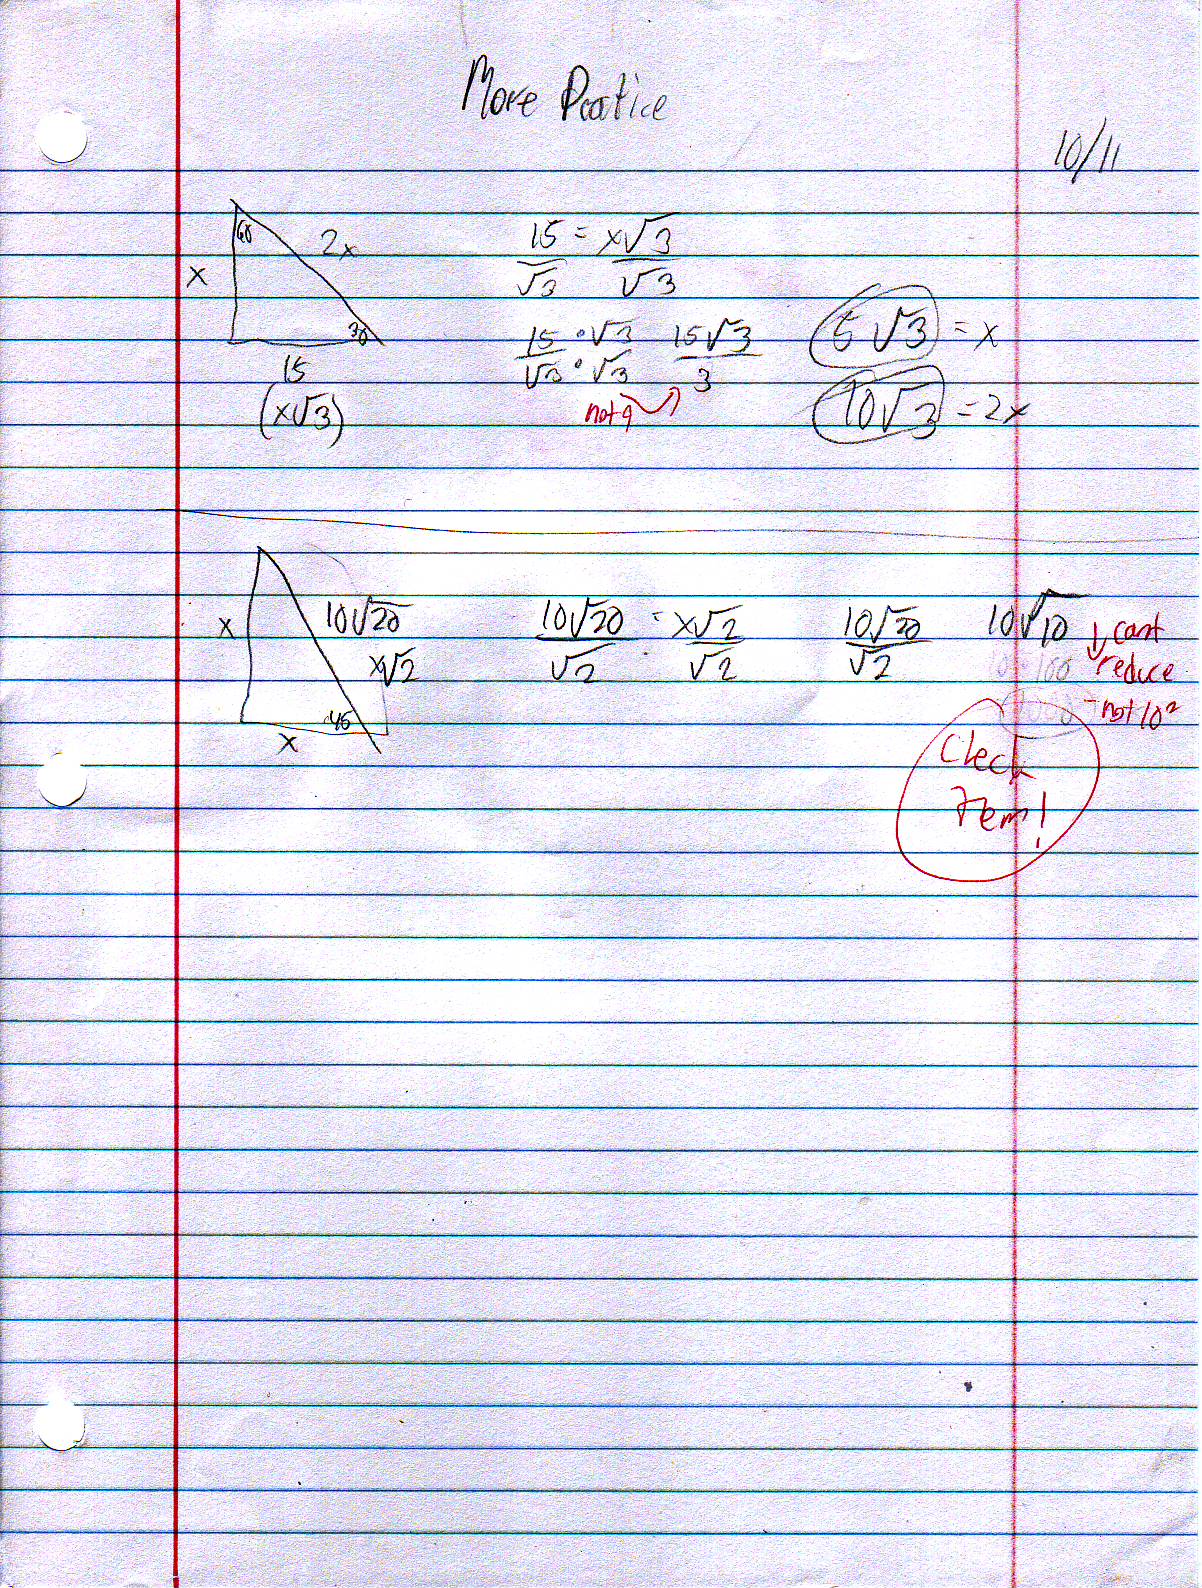 More Practice
10/11
60
2x
x
30
15
(x√3)
15 = x√3
√3 √3
15 · √3 15√3
√3 · √3 3
not 9
5√3 = x
10√3 = 2x
x
10√20
x√2
45
x
10√20 = x√2
√2 √2
10√20
√2
10√10
cant
reduce
10·100
not 10²
Check
Them!